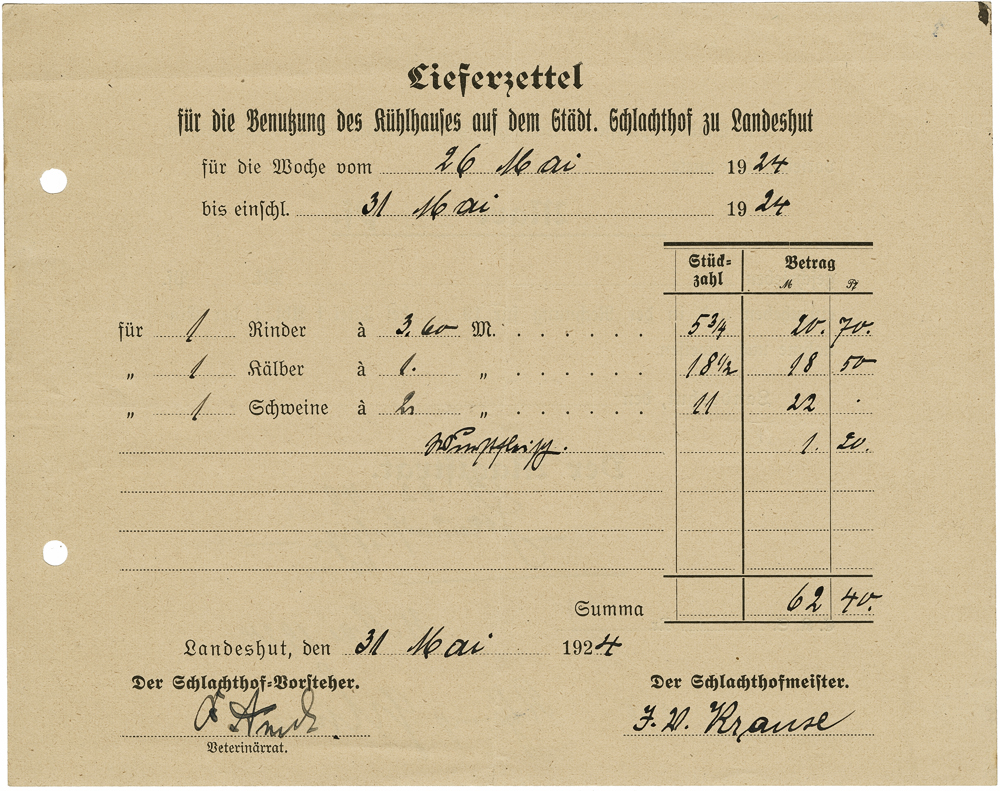 Lieferzettel
für die Benutzung des Kühlhauses auf dem Städt. Schlachthof zu Landeshut
für die Woche vom 26 Mai 1924
bis einschl. 31 Mai 1924
Stück=zahl Betrag
M Pf
für 1 Rinder à 3.60 M. 5 3/4 20. 70.
„ 1 Kälber à 1. „ 18 1/2 18 50
„ 1 Schweine à 2 „ 11 22 .
Wurstfleisch. 1. 20.
Summa 62 40.
Landeshut, den 31 Mai 1924
Der Schlachthof=Vorsteher. Der Schlachthofmeister.
J. V. Krause
Veterinärrat.